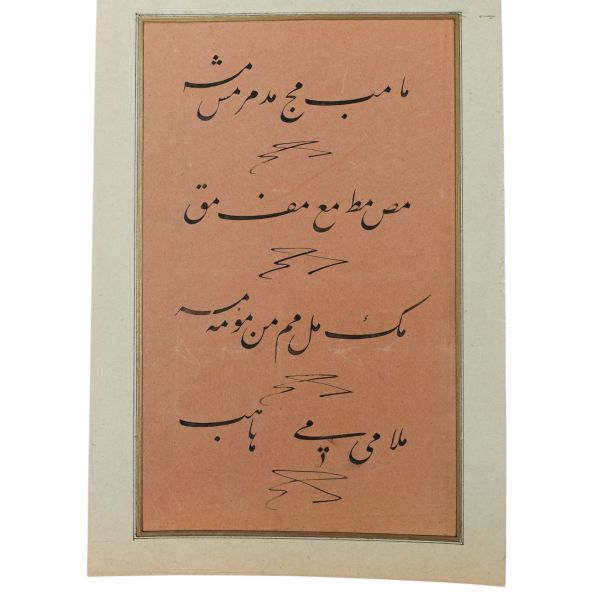 ما مب مج مد مر مس مش
مص مط مع مف مق
مک مل مم من مو مه مه
ملا می مے ها هب